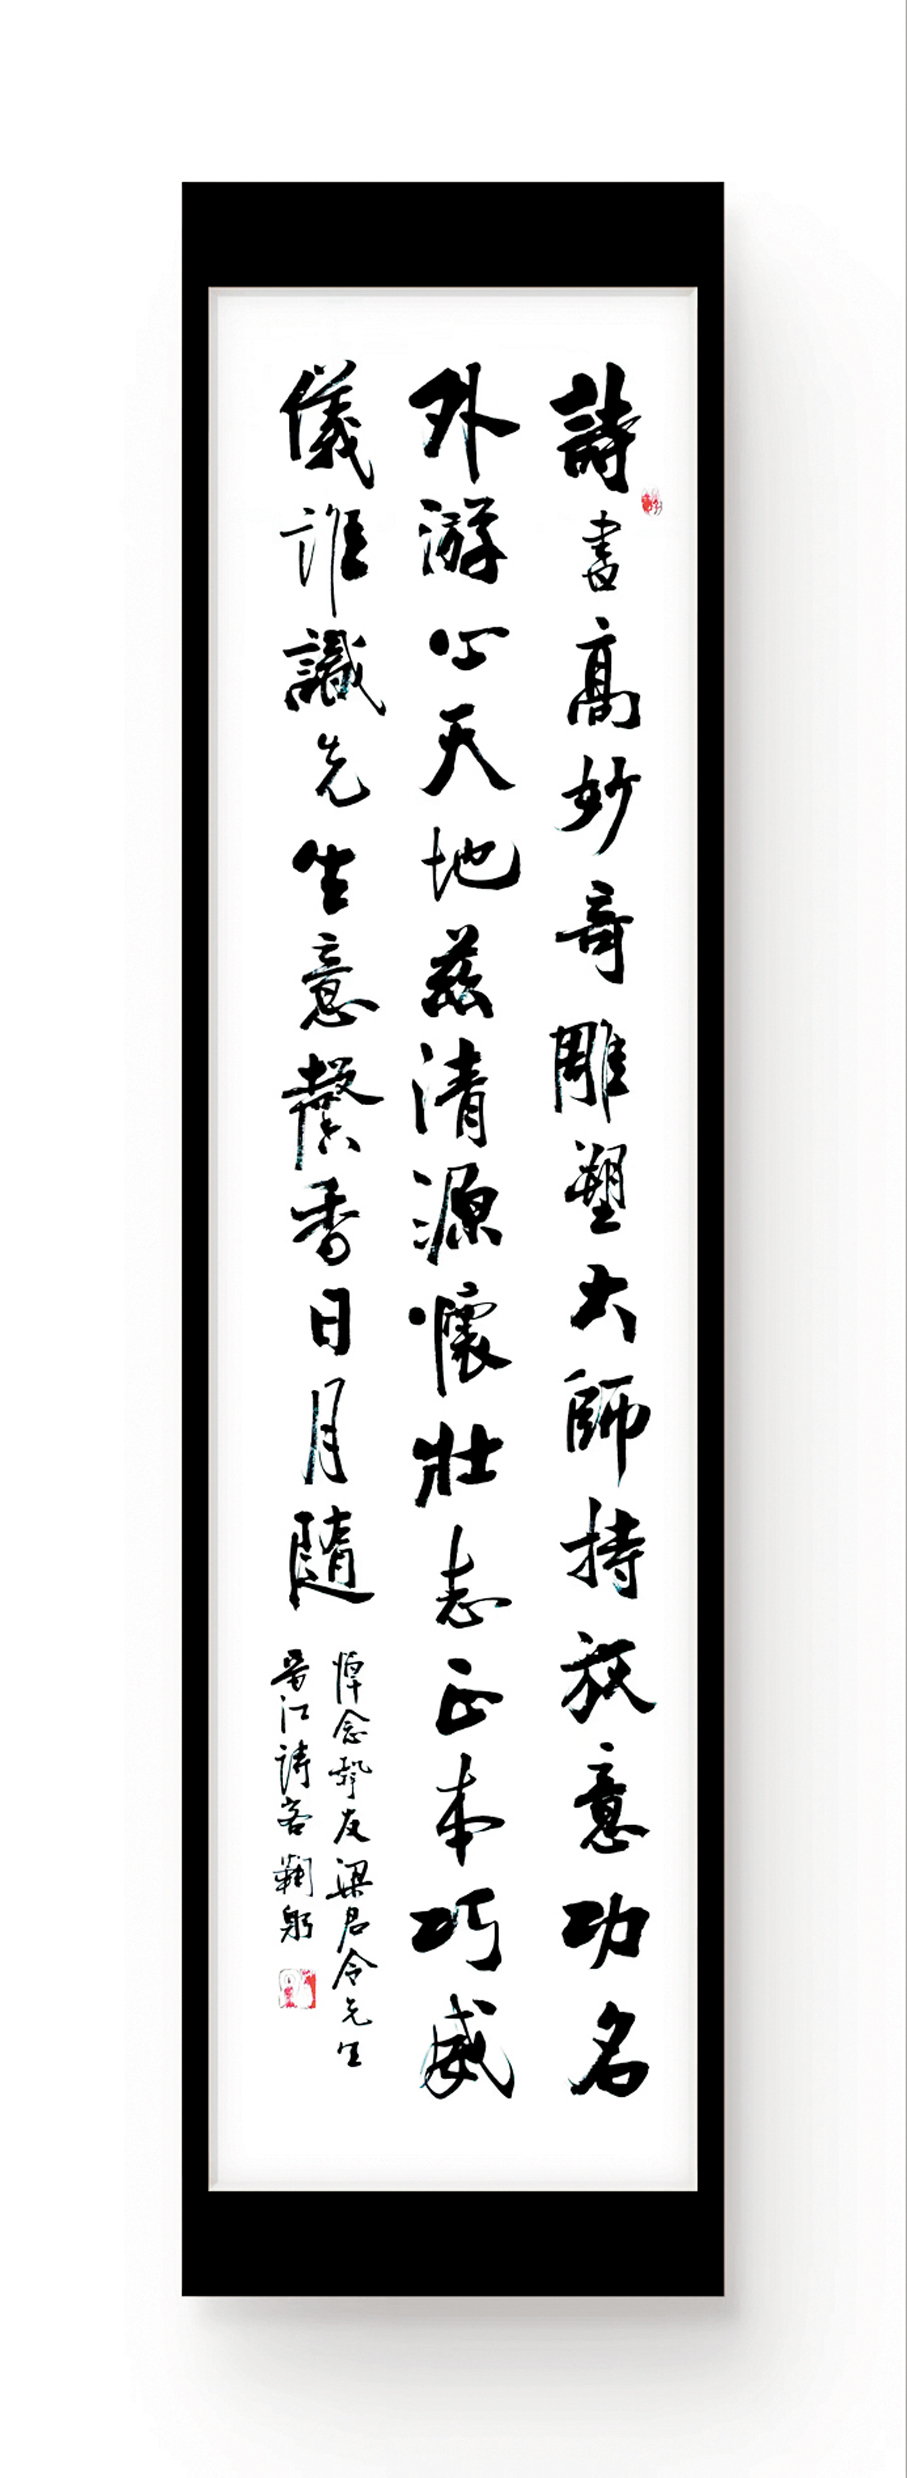 詩書高妙奇雕塑大師持放意功名
外游心天地慈清源懷壯志正本巧威
儀誰識先生意馨香日月隨
悼念摯友梁君令先生
晉江詩客鞠躬